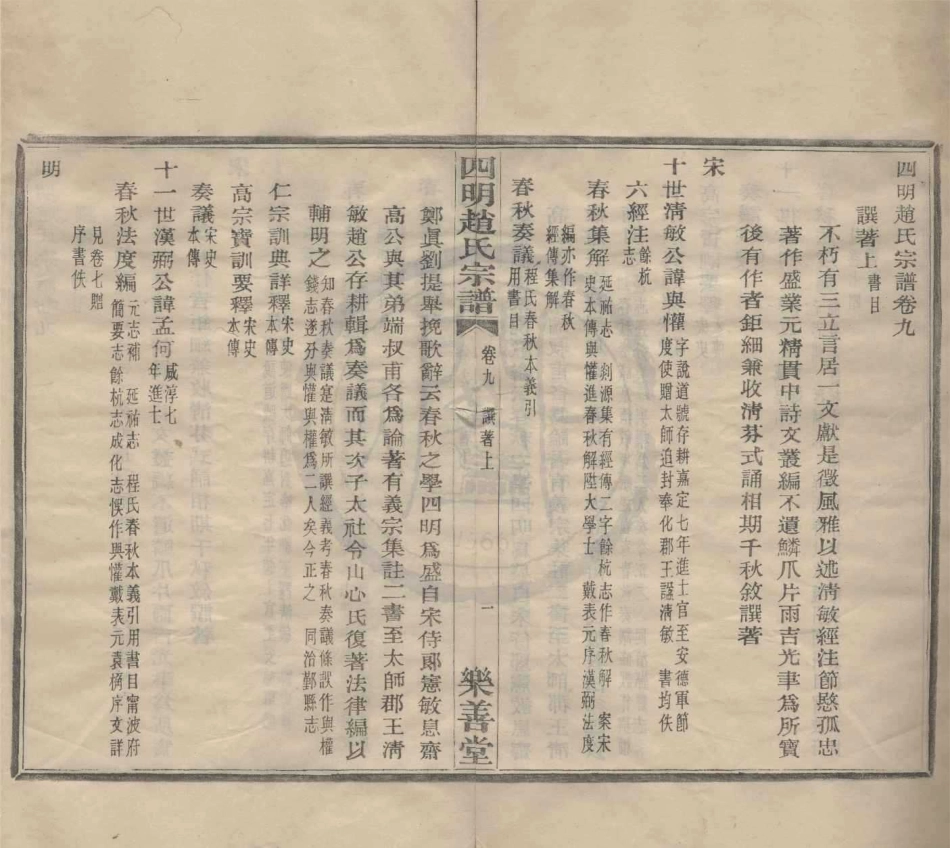 四明趙氏宗譜卷九
譔著上書目
不朽有三立言居一文獻是徵風雅以述淸敏經注節愍孤忠
著作盛業元精貫中詩文叢編不遺鱗爪片雨吉光聿爲所寶
後有作者鉅細兼收淸芬式誦相期千秋敘譔著
宋
十世淸敏公諱與懽字說道號存耕嘉定七年進士官至安德軍節
度使贈太師追封奉化郡王諡淸敏　書均佚
六經注餘杭
志
春秋集解延祐志　剡源集有經傳二字餘杭志作春秋解　案宋
史本傳與懽進春秋解陞大學士　戴表元序漢弼法度
編亦作春秋
經傳集解
春秋奏議程氏春秋本義引
用書目
四明趙氏宗譜　卷九　譔著上　一　樂善堂
鄭眞劉提舉挽歌辭云春秋之學四明爲盛自宋侍郞憲敏息齋
高公與其弟端叔甫各爲論著有義宗集註二書至太師郡王淸
敏趙公存耕輯爲奏議而其次子太社令山心氏復著法律編以
輔明之知春秋奏議寔淸敏所譔經義考春秋奏議條誤作與權
錢志遂分與懽與權爲二人矣今正之　同治鄞縣志
仁宗訓典詳釋宋史
本傳
高宗寶訓要釋宋史
本傳
奏議宋史
本傳
十一世漢弼公諱孟何咸淳七
年進士
春秋法度編元志補　延祐志　程氏春秋本義引用書目甯波府
簡要志餘杭志成化志悞作與懽戴表元袁桷序文詳
見卷七贈
序書佚
明